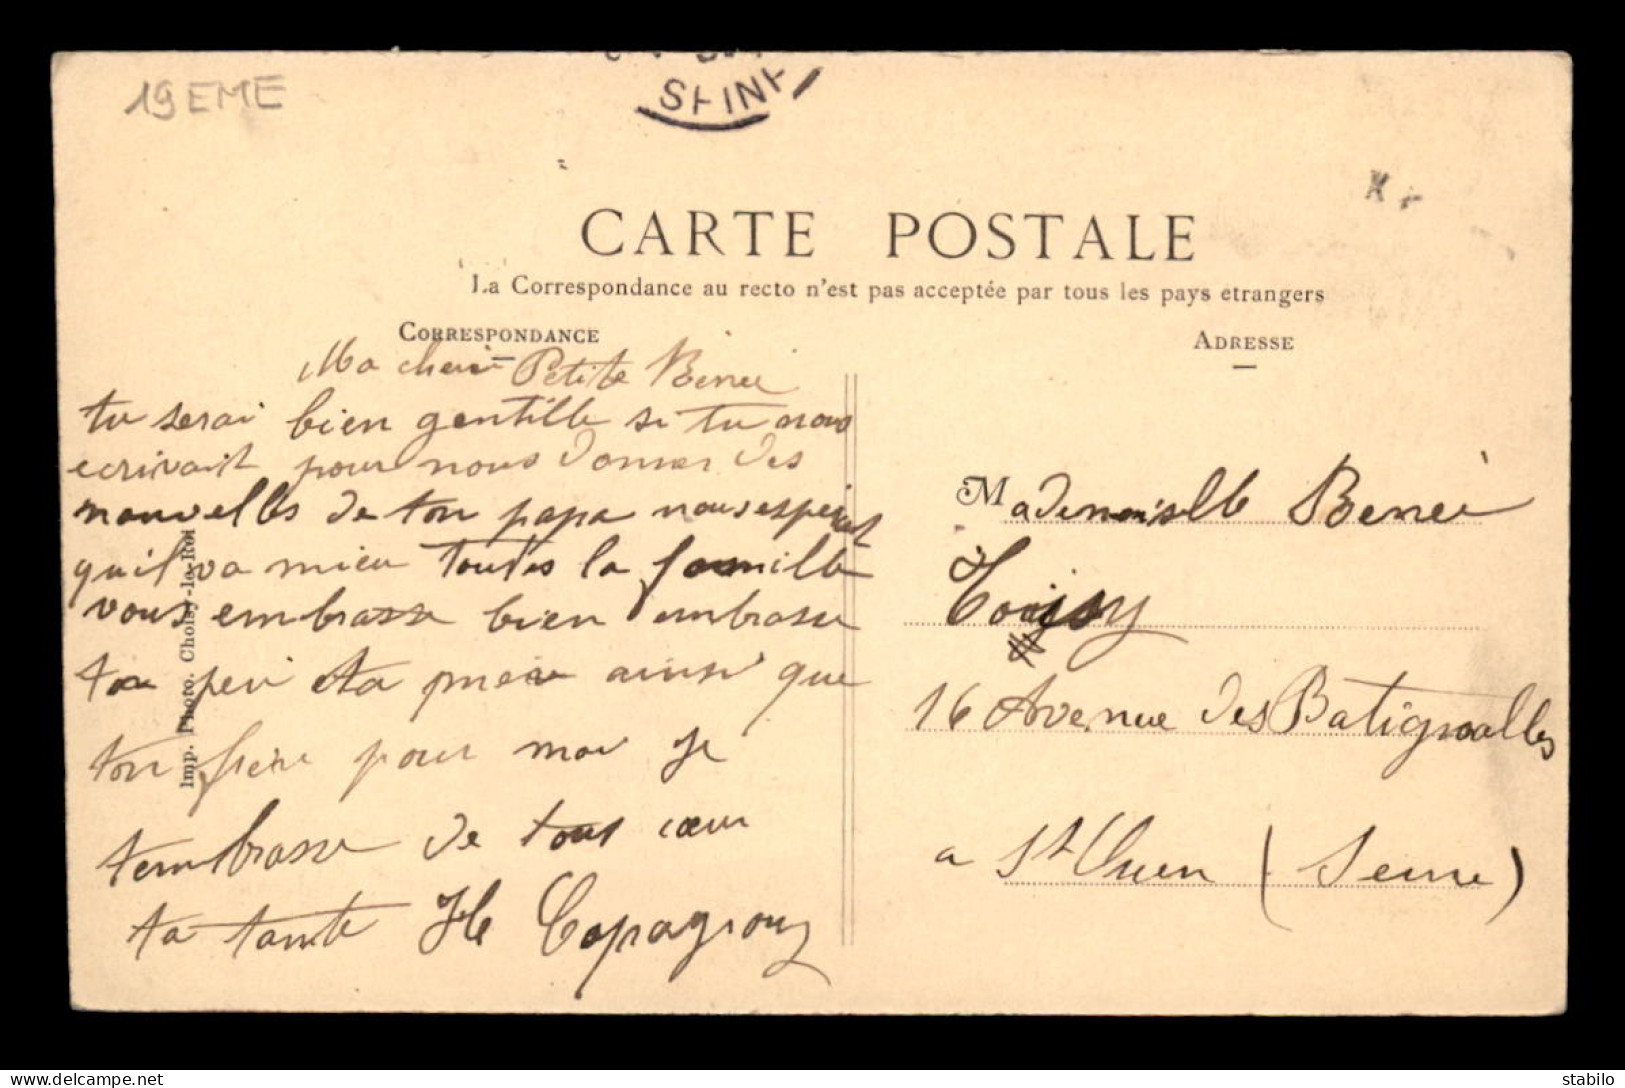 19 EME
SEINE
CARTE POSTALE
La Correspondance au recto n'est pas acceptée par tous les pays etrangers
CORRESPONDANCE
Ma cheri Petite Renee
tu serai bien gentille si tu nous
ecrivait pour nous donner des
nouvelles de ton papa nous esperont
quil va mieu toutes la famille
vous embrasse bien embrasse
ton peri ta mere ainsi que
ton frere pour moi je
tembrasse de tout cœur
ta tante
Imp. Photo. Choisy-le-Roi
ADRESSE
Mademoiselle Renee
16 Avenue des Batignolles
a St Ouen (Seine)
delcampe.net
stabilo